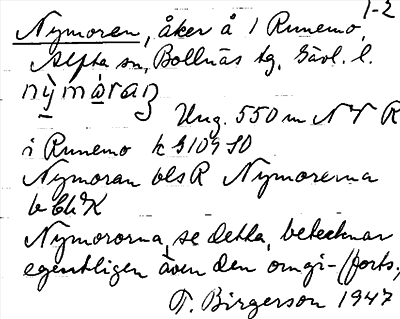 1-2
Nymoren, åker å 1 Runemo,
Alfta sn, Bollnäs tg, Gävl. l.
nỳmòraṇ
Ung. 550 m N V R
i Runemo k S109 SO
Nymoran bls R Nymorerna
b
Nymororna, se detta, betecknar
egentligen även den omgi- (forts.,
T. Birgerson 1947